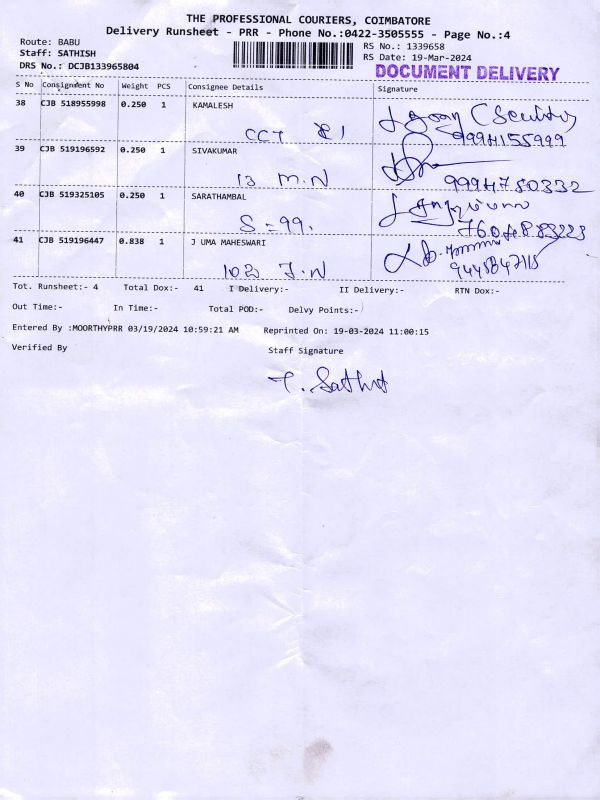 THE PROFESSIONAL COURIERS, COIMBATORE
Delivery Runsheet - PRR - Phone No.:0422-3505555 - Page No.:4
Route: BABU
RS No.: 1339658
Staff: SATHISH
RS Date: 19-Mar-2024
DRS No.: DCJB133965804
DOCUMENT DELIVERY
S No Consignment No Weight PCS Consignee Details Signature
38 CJB 518955998 0.250 1 KAMALESH
9994155999
39 CJB 519196592 0.250 1 SIVAKUMAR
13 M.N 9994750332
40 CJB 519325105 0.250 1 SARATHAMBAL
S = 99.
41 CJB 519196447 0.838 1 J UMA MAHESWARI
102 J.N
Tot. Runsheet:- 4 Total Dox:- 41 I Delivery:- II Delivery:- RTN Dox:-
Out Time:- In Time:- Total POD:- Delvy Points:-
Entered By :MOORTHYPRR 03/19/2024 10:59:21 AM Reprinted On: 19-03-2024 11:00:15
Verified By Staff Signature